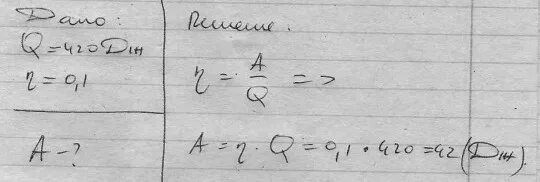 Дано:
Q = 420 Дж
η = 0,1
A - ?
Решение.
η = A/Q =>
A = η · Q = 0,1 · 420 = 42 (Дж).